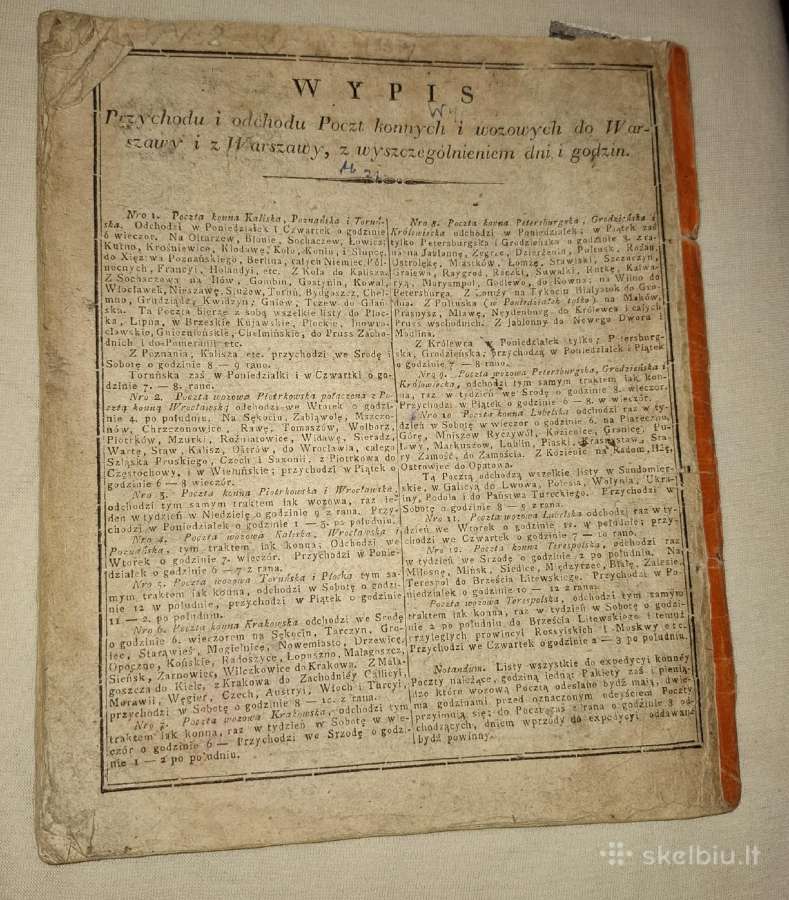 WYPIS
Przychodu i odchodu Poczt konnych i wozowych do War-
szawy i z Warszawy, z wyszczególnieniem dni i godzin.
Nro 1. Poczta konna Kaliska, Poznańska i Toruń-
ska. Odchodzi w Poniedziałek i Czwartek o godzinie
6 wieczor. Na Ołtarzew, Błonie, Sochaczew, Łowicz,
Kutno, Krośniewice, Kłodawę, Koło, Konin, i Słupcę,
do Xięztwa Poznańskiego, Berlina, całych Niemiec, Pół-
nocnych, Francyi, Holandyi, etc. Z Koła do Kalisza.
Z Sochaczewa na Iłów, Gombin, Gostynin, Kowal,
Włocławek, Nieszawę, Służew, Toruń, Bydgoszcz, Chełm-
no, Grudziądz, Kwidzyn, Gniew, Tczew do Gdań-
ska. Ta Poczta bierze z sobą wszelkie listy do Płoc-
ka, Lipna, w Brzeskie Kujawskie, Płockie, Inowra-
cławskie, Gnieźnieńskie, Chełmińskie, do Pruss Zacho-
dnich i do Pomeranii etc.
Z Poznania, Kalisza etc. przychodzi we Srodę i
Sobotę o godzinie 8 — 9 rano.
Toruńska zaś w Poniedziałki i w Czwartki o go-
dzinie 7. — 8. rano.
Nro 2. Poczta wozowa Piotrkowska połączona z Po-
cztą konną Wrocławską odchodzi we Wtorek o godzi-
nie 4. po południu. Na Sękocin, Zabiąwolę, Mszczo-
nów, Chrzczonowice, Rawę, Tomaszów, Wolborz,
Piotrków, Mzurki, Rozniatowice, Widawę, Sieradz,
Wartę, Staw, Kalisz, Ostrów, do Wrocławia, całego
Szląska Pruskiego, Czech i Saxonii, z Piotrkowa do
Częstochowy, i w Wieluńskie; przychodzi w Piątek o
godzinie 6 — 8 wieczór.
Nro 3. Poczta konna Piotrkowska i Wrocławska,
odchodzi tym samym traktem jak wozowa, raz ie-
den w tydzień w Niedzielę o godzinie 9 z rana. Przy-
chodzi w Poniedzialek o godzinie 1 — 3. po południu.
Nro 4. Poczta wozowa Kaliska, Wrocławska i
Poznańska, tym traktem jak konna; Odchodzi we
Wtorek o godzinie 7. wieczór. Przychodzi w Ponie-
działek o godzinie 6 — 7 z rana.
Nro 5. Poczta wozowa Toruńska i Płocka tym sa-
mym traktem jak konna, odchodzi w Sobotę o godzi-
nie 12 w południe, przychodzi w Piątek o godzinie
11 — 2. po południu.
Nro 6. Poczta konna Krakowska odchodzi we Srodę
o godzinie 6. wieczorem na Sękocin, Tarczyn, Gro-
iec, Starąwieś, Mogielnicę, Nowemiasto, Drzewicę,
Opoczno, Końskie, Radoszyce, Łopuszno, Małagoszcz,
Sieńsk, Zarnowiec, Wilczkowice do Krakowa. Z Mała-
goszcza do Kielc, z Krakowa do Zachodniéy Gallicyi,
Morawii, Węgier, Czech, Austryi, Włoch i Turcyi,
przychodzi w Sobotę o godzinie 8 — 10. z rana.
Nro 7. Poczta wozowa Krakowska, odchodzi tym
traktem jak konna, raz w tydzień w Sobotę w wie-
czór o godzinie 6 — Przychodzi we Srzodę o godzi-
nie 1 — 2 po południu.
Nro 8. Poczta konna Petersburgska, Grodzieńska i
Królowiecka odchodzi w Poniedziałek; w Piątek zaś
tylko Petersburgska i Grodzieńska o godzinie 3. z ra-
na na Jabłonnę, Zegrze, Dzierżenin, Pułtusk, Rożan,
Ostrołękę, Miastków, Łomżę, Stawiski, Szczuczyn,
Graiewa, Raygrod, Raczki, Suwałki, Rutkę, Kalwa-
ryą, Maryampol, Godlewo, do Kowna; na Wilno do
Petersburga. Z Łomży na Tykocin Białystok do Gro-
dna. Z Pułtuska (w Poniedziałek tylko) na Maków,
Prasnysz, Mławę, Neydenburg do Królewca i całych
Pruss wschodnich. Z Jabłonny do Nowego Dworu i
Modlina.
Z Królewca w Poniedziałek tylko; Petersburg-
ska, Grodzieńska; przychodzą w Poniedziałek i Piątek
o godzinie 7 — 8 rano.
Nro 9. Poczta wozowa Petersburgska, Grodzieńska i
Królowiecka, odchodzi tym samym traktem jak kon-
na, raz w tydzień we Srodę o godzinie 8. wieczór.
Przychodzi w Piątek o godzinie 6. — 8. w wieczór.
Nro 10. Poczta konna Lubelska odchodzi raz w ty-
dzień w Sobotę w wieczor o godzinie 6. na Piaseczno,
Górę, Mniszew Ryczywół, Kozienice, Granicę, Pu-
ławy, Markuszow, Lublin, Piaski, Krasnystaw, Sta-
ry Zamość, do Zamościa. Z Kozienic na Radom, Iłżę,
Ostrowiec do Opatowa.
Tą Pocztą odchodzą wszelkie listy w Sandomier-
skie, w Galicyą do Lwowa, Polesia, Wołynia, Ukra-
iny, Podola i do Państwa Tureckiego. Przychodzi w
Sobotę o godzinie 8 — 9 z rana.
Nro 11. Poczta wozowa Lubelska odchodzi raz w ty-
dzień we Wtorek o godzinie 12. w południe; przy-
chodzi we Czwartek o godzinie 7 — 10 rano.
Nro 12. Poczta konna Terespolska, odchodzi raz
w tydzień we Srodę o godzinie 2 po południu. Na
Miłosnę, Mińsk, Siedlce, Międzyrzec, Białę, Zalesie,
Terespol do Brześcia Litewskiego. Przychodzi w Po-
niedziałek o godzinie 10 — 12 z rana.
Poczta wozowa Terespolska, odchodzi tym samym
traktem jak konna, raz w tydzień w Sobotę o godzi-
nie 2 po południu do Brześcia Litewskiego i temuż
przyległych prowincyi Rossyiskich i Moskwy etc.
Przychodzi we Czwartek o godzinie 2 — 3 po południu.
Notandum. Listy wszystkie do expedycyi konnéy
Poczty należące, godziną iedną; Pakiety zaś i pienią-
dze które wozową Pocztą odesłane bydź maią, dwie-
ma godzinami przed oznaczonym odeyściem Poczty
przyimuią się; do Poczt zaś z rana o godzinie 3 od-
chodzących, dniem wprzódy do expedycyi oddawane
bydź powinny.
skelbiu.lt